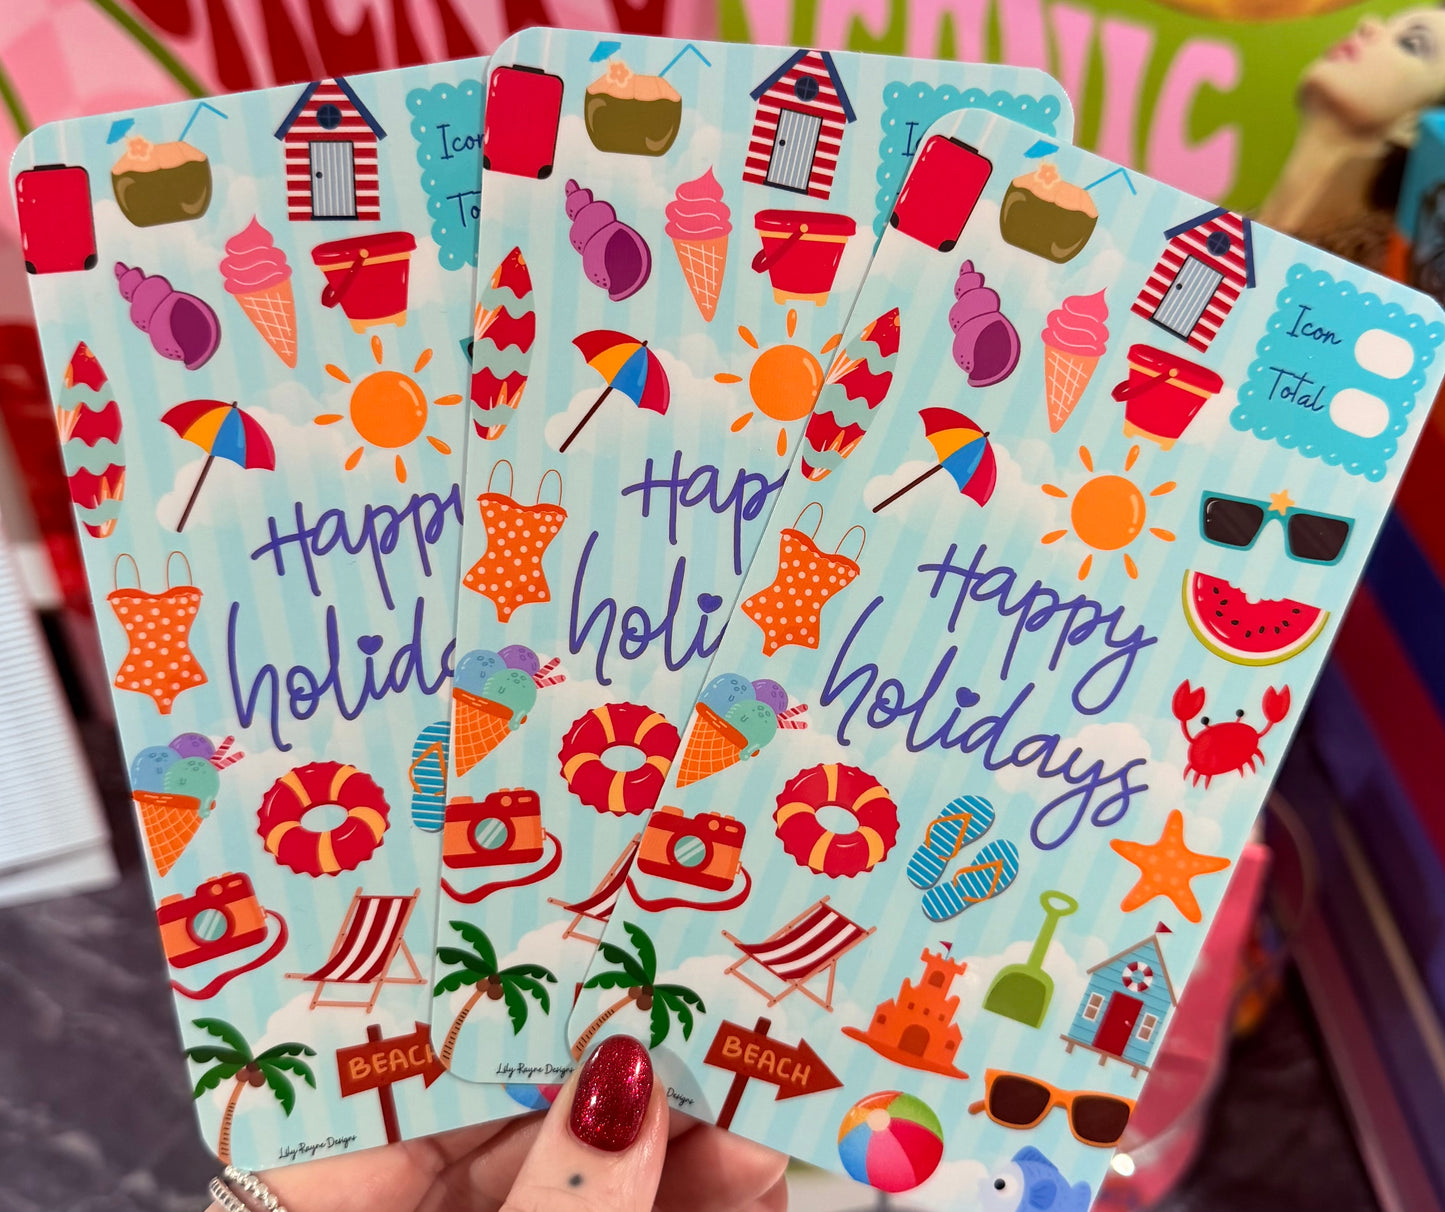 Icon
To
Happy
holida
BEACH
Lily Rayne Designs
Hap
holi
Lily Rayne Designs
Icon
Total
Happy
holidays
BEACH
Designs